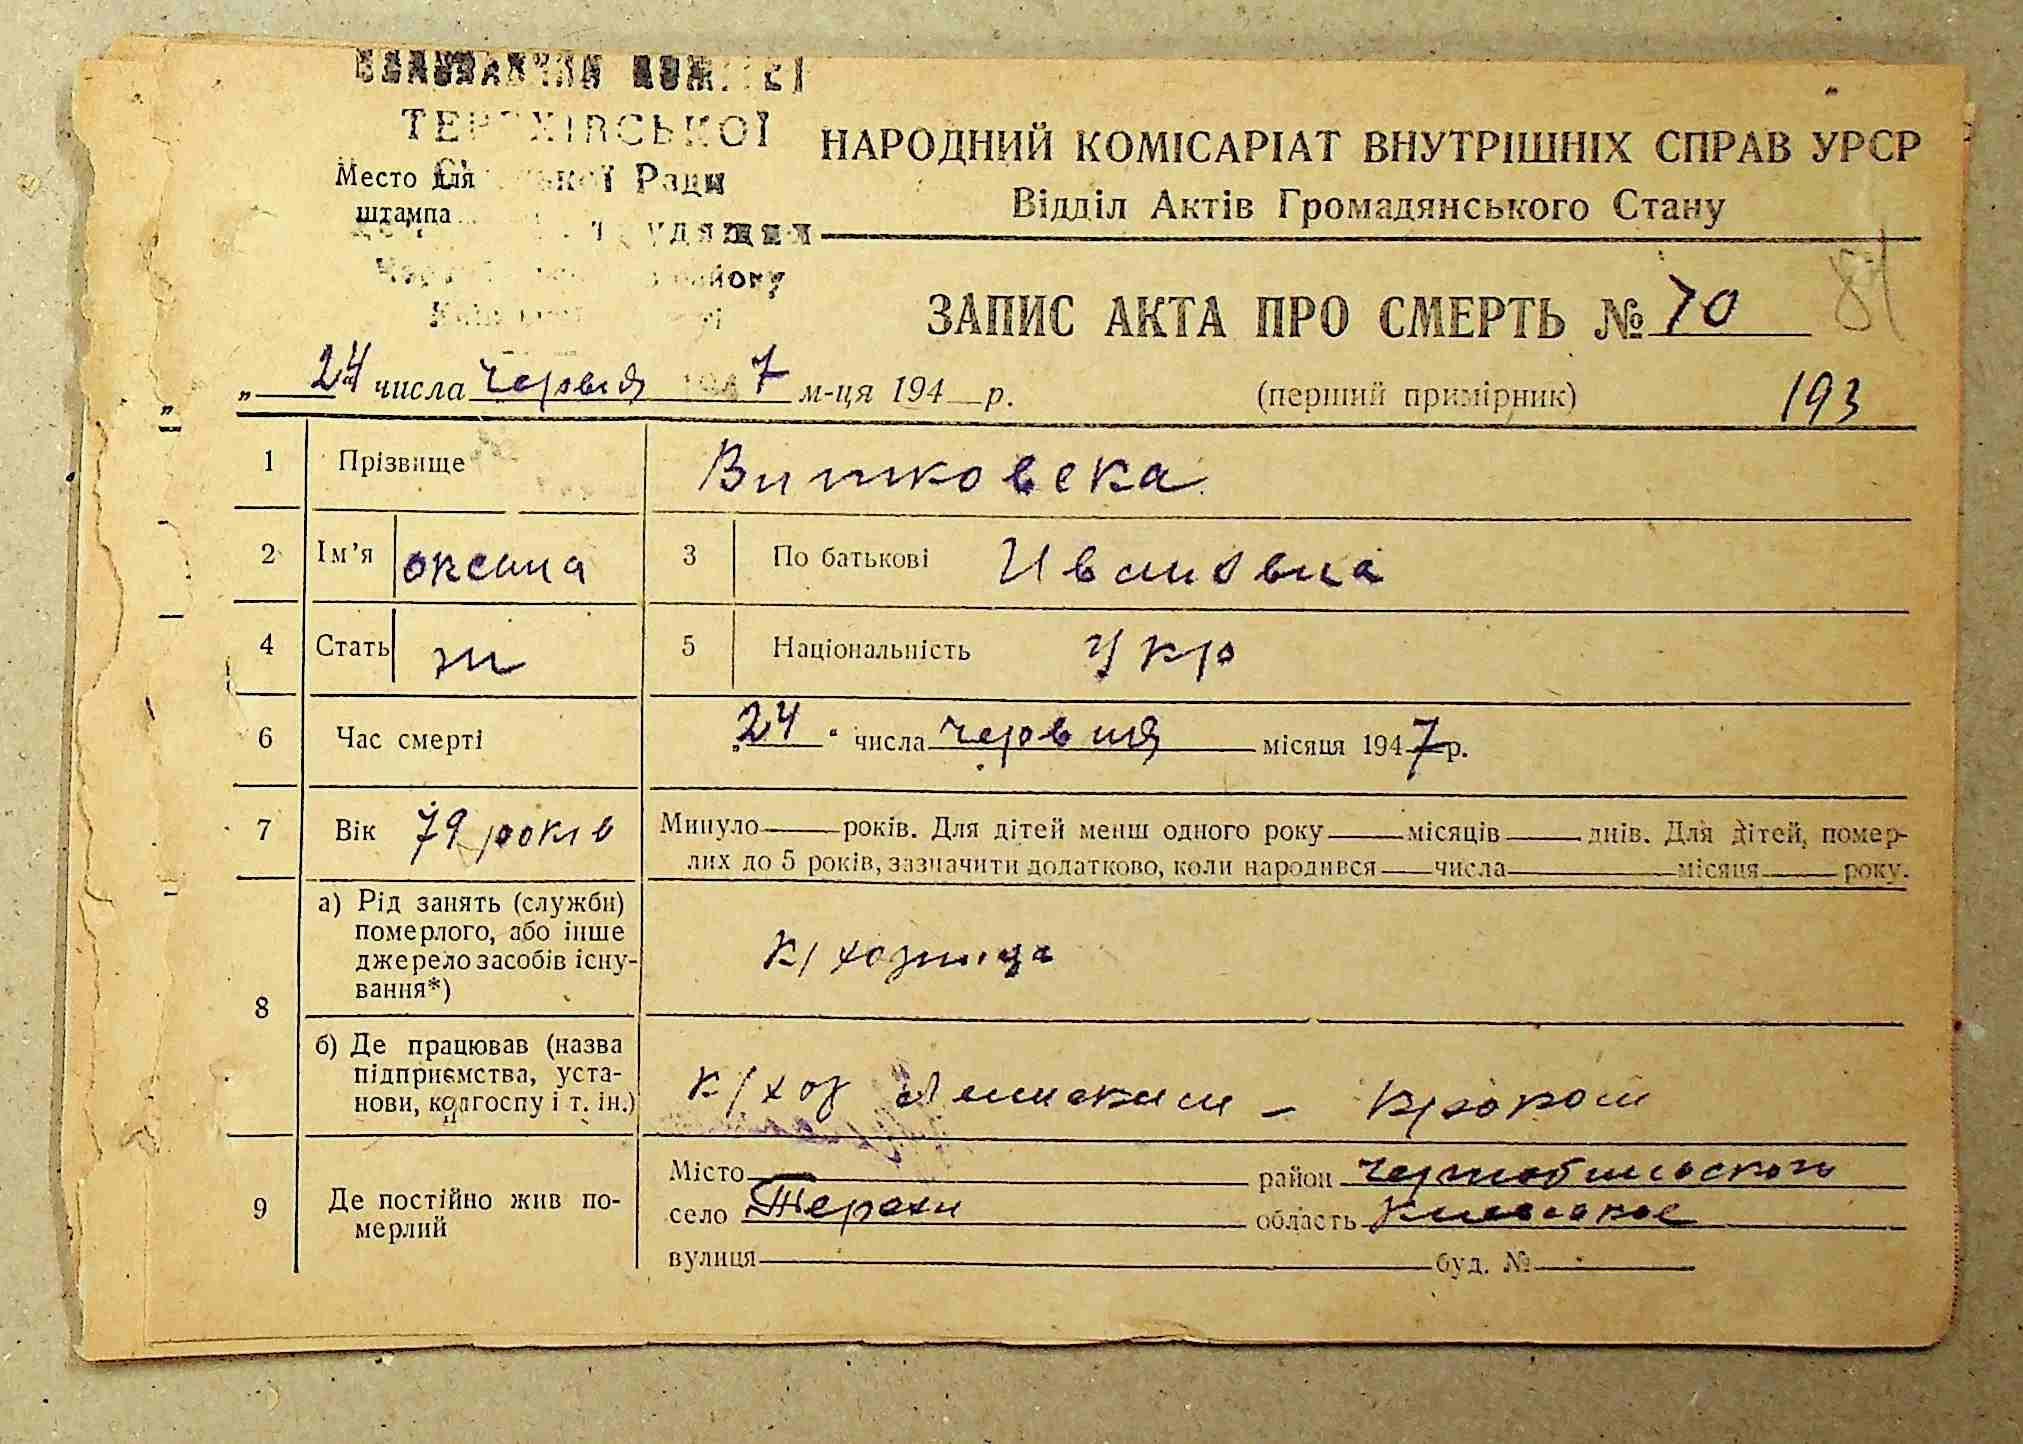 ВИКОНАВЧИЙ КОМІТЕТ
ТЕРЕХІВСЬКОЇ
Место для
штампа
Ради
трудящих
району
НАРОДНИЙ КОМІСАРІАТ ВНУТРІШНІХ СПРАВ УРСР
Відділ Актів Громадянського Стану
ЗАПИС АКТА ПРО СМЕРТЬ № 70
81
„24" числа червня 1947 м-ця 194 р.
(перший примірник)
193
1 Прізвище Витковска
2 Ім’я оксана 3 По батькові Ивановна
4 Стать ж 5 Національність Укр
6 Час смерті „24" числа червня місяця 1947 р.
7 Вік 79 років Минуло років. Для дітей менш одного року місяців днів. Для дітей, помер-
лих до 5 років, зазначити додатково, коли народився числа місяця року.
8
а) Рід занять (служби)
померлого, або інше
джерело засобів існу-
вання*)
к/хозница
б) Де працював (назва
підприємства, уста-
нови, колгоспу і т. ін.)
к/хоз
9 Де постійно жив по-
мерлий
Місто район Чернобильского
село Терехи область Киевское
вулиця буд. №